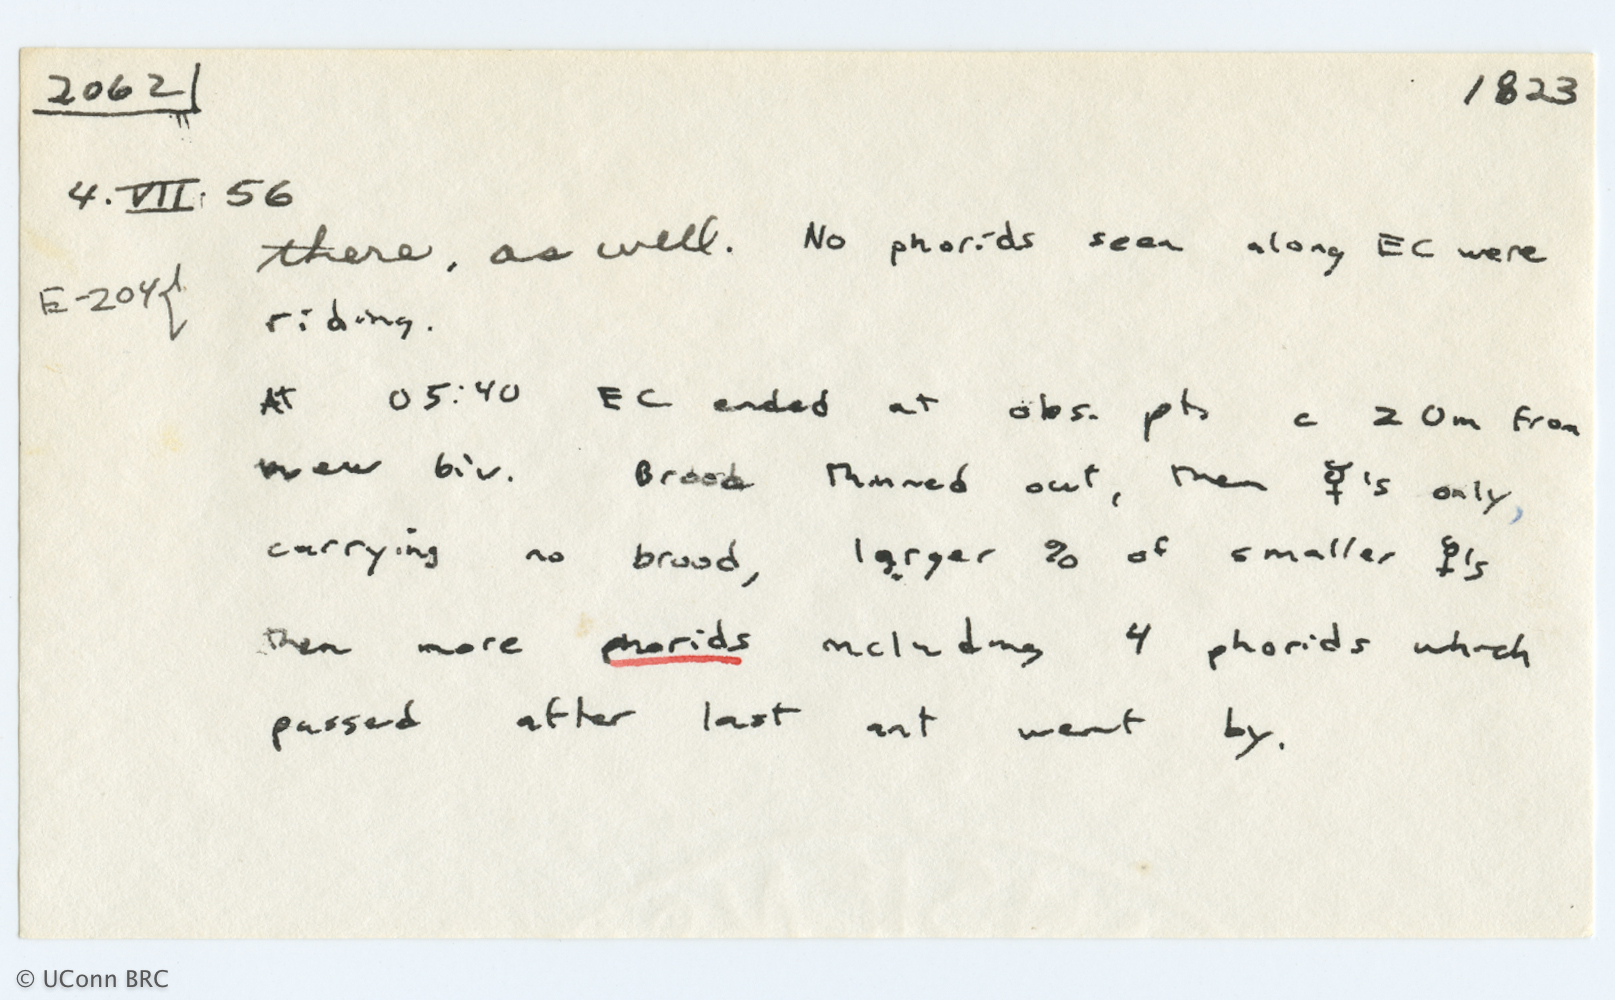 2062
1823
4.VII.56
there, as well. No phorids seen along EC were
E-204{
riding.
At 05:40 EC ended at obs. pts c 20m from
new biv. Brood thinned out, then ☿'s only,
carrying no brood, larger % of smaller ☿'s
then more phorids including 4 phorids which
passed after last ant went by.
© UConn BRC